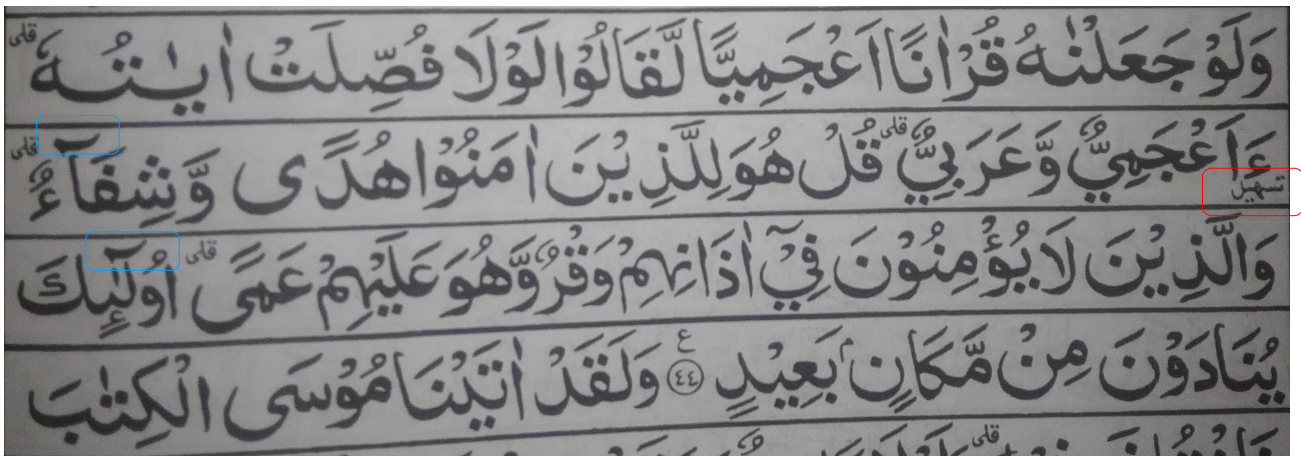 وَلَوْ جَعَلْنٰهُ قُرْاٰنًا اَعْجَمِيًّا لَّقَالُوْا لَوْلَا فُصِّلَتْ اٰيٰتُهٗ ۗ
ءَاَعْجَمِيٌّ وَّعَرَبِيٌّ ۗ قُلْ هُوَ لِلَّذِيْنَ اٰمَنُوْا هُدًى وَّشِفَاۤءٌ ۗ
تسهيل
وَالَّذِيْنَ لَا يُؤْمِنُوْنَ فِيْٓ اٰذَانِهِمْ وَقْرٌ وَّهُوَ عَلَيْهِمْ عَمًى ۗ اُولٰۤىِٕكَ
يُنَادَوْنَ مِنْ مَّكَانٍۢ بَعِيْدٍ ع ٤٤ وَلَقَدْ اٰتَيْنَا مُوْسَى الْكِتٰبَ